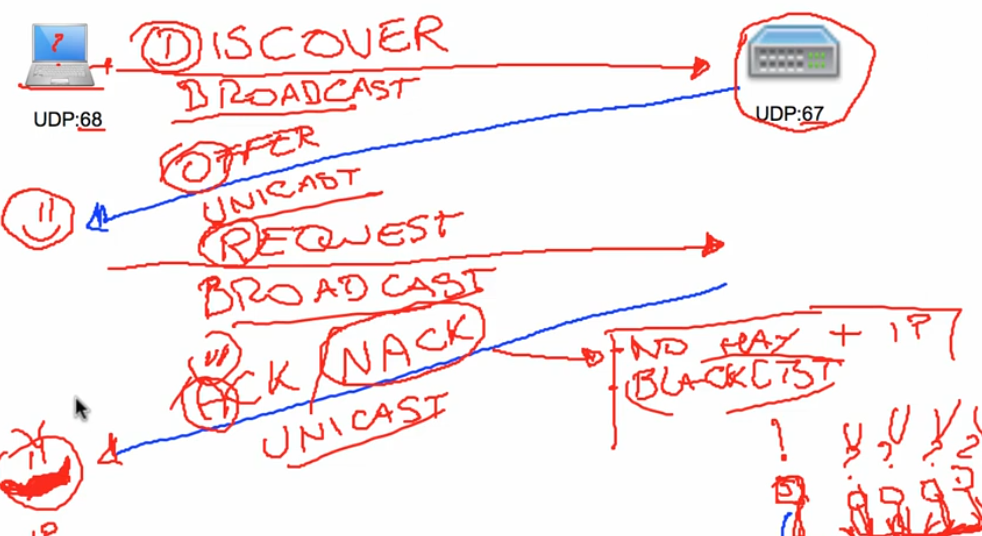 DISCOVER
BROADCAST
UDP:68
UDP:67
OFFER
UNICAST
REQUEST
BROADCAST
ACK / NACK
UNICAST
- NO HAY + IP
- BLACKLIST
IP